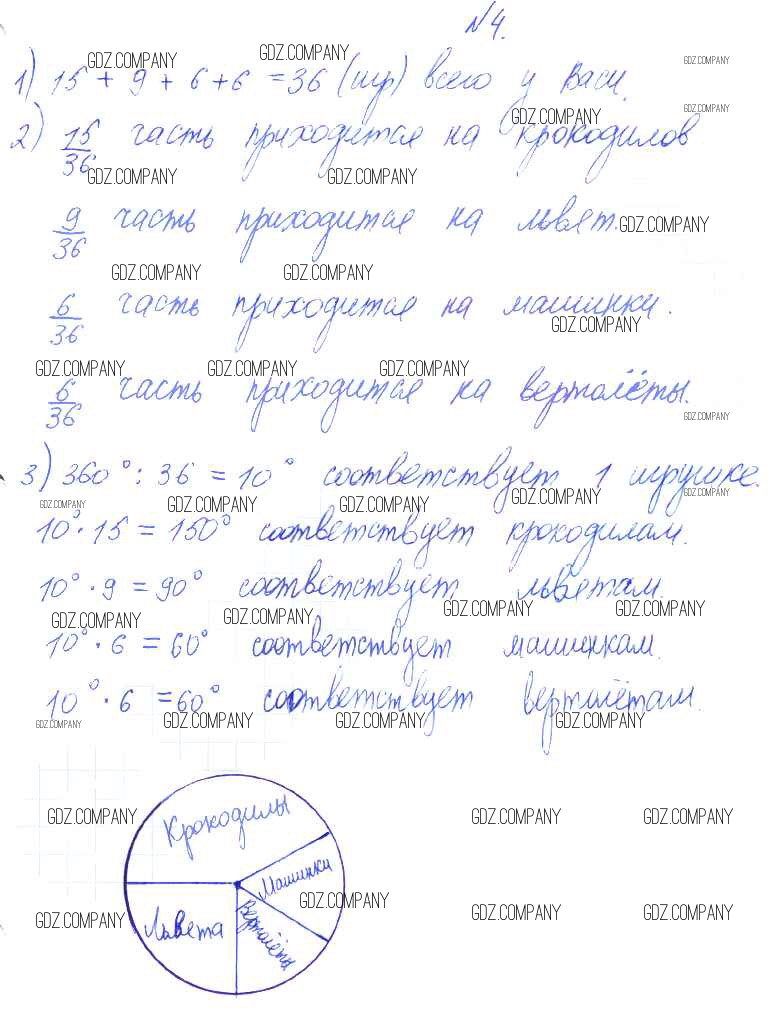 №4.
GDZ.COMPANY GDZ.COMPANY GDZ.COMPANY
1) 15 + 9 + 6 + 6 = 36 (игр) всего у Васи.
GDZ.COMPANY GDZ.COMPANY
2) 15/36 часть приходится на крокодилов
GDZ.COMPANY GDZ.COMPANY
9/36 часть приходится на львят. GDZ.COMPANY
GDZ.COMPANY GDZ.COMPANY
6/36 часть приходится на машинки.
GDZ.COMPANY
GDZ.COMPANY GDZ.COMPANY GDZ.COMPANY
6/36 часть приходится на вертолёты.
GDZ.COMPANY
3) 360° : 36 = 10° соответствует 1 игрушке.
GDZ.COMPANY GDZ.COMPANY GDZ.COMPANY GDZ.COMPANY GDZ.COMPANY
10° · 15 = 150° соответствует крокодилам.
10° · 9 = 90° соответствует львётам.
GDZ.COMPANY GDZ.COMPANY GDZ.COMPANY GDZ.COMPANY
10° · 6 = 60° соответствует машинкам.
10° · 6 = 60° соответствует вертолётам.
GDZ.COMPANY GDZ.COMPANY GDZ.COMPANY GDZ.COMPANY
Крокодилы
GDZ.COMPANY GDZ.COMPANY GDZ.COMPANY
Машинки
GDZ.COMPANY
Львета
Вертолёты
GDZ.COMPANY GDZ.COMPANY GDZ.COMPANY